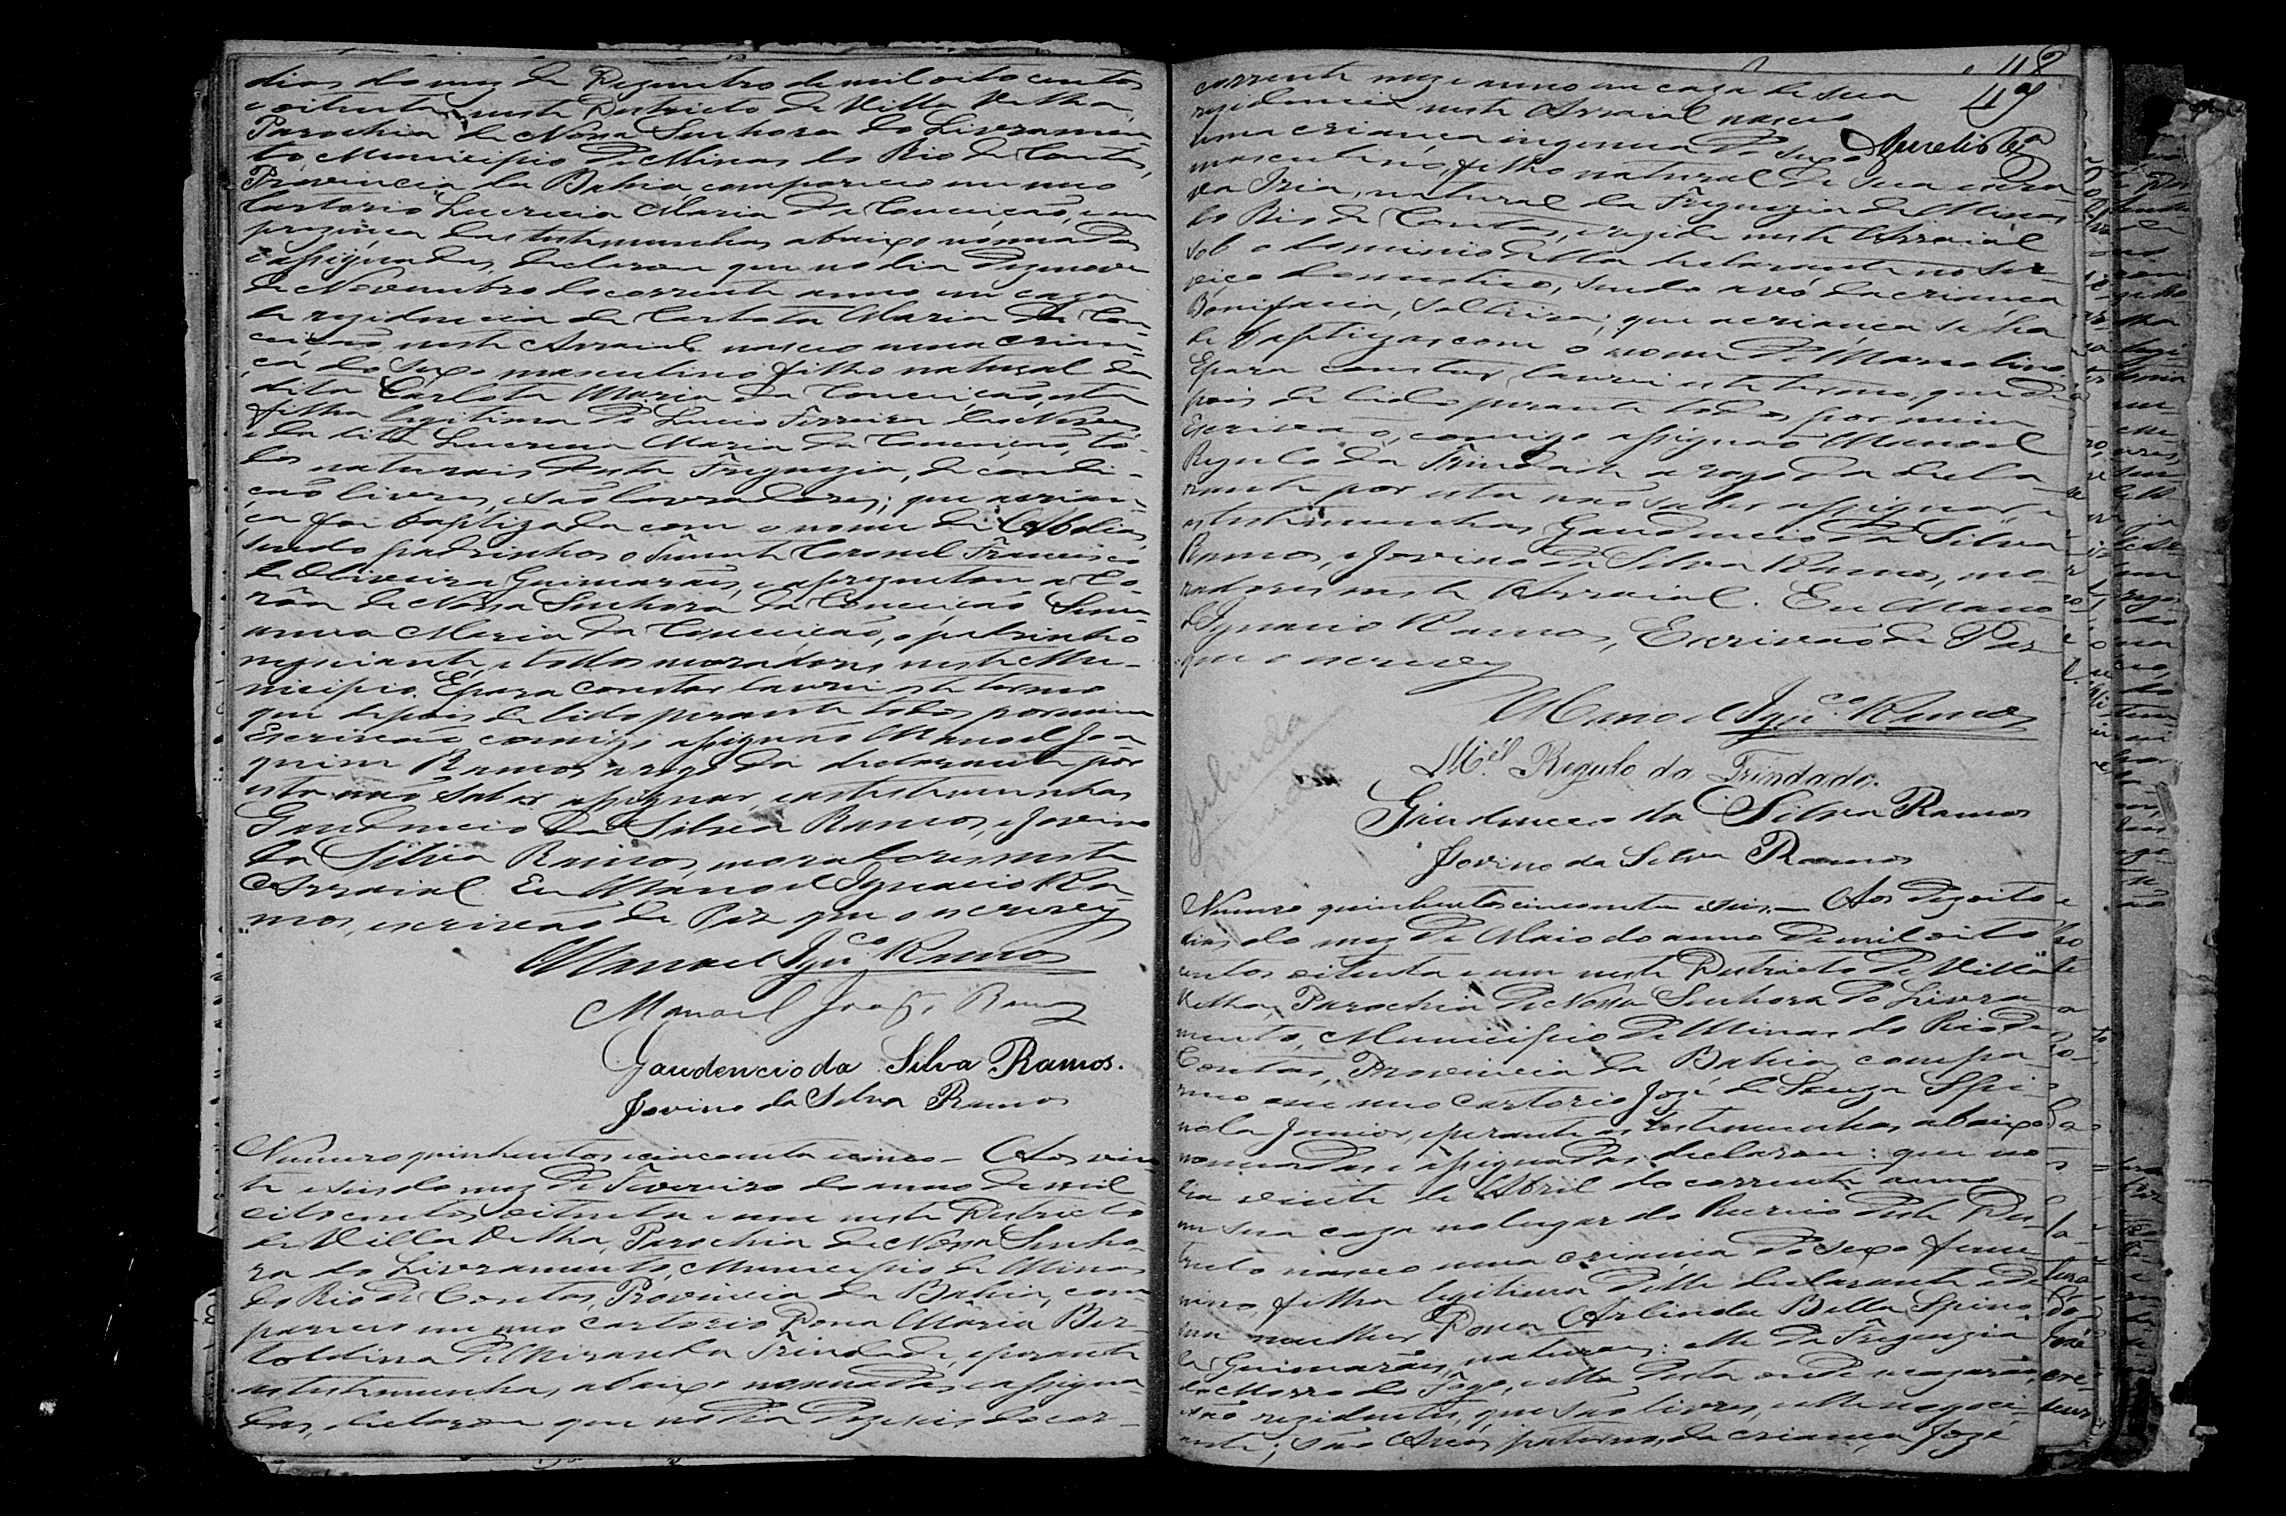 dias do mez de Dezembro de mil oito centos
e oitenta neste Districto de Villa Velha,
Parochia de Nossa Senhora do Livramen-
to Municipio de Minas do Rio de Contas,
Provincia da Bahia, compareceo em meo
Cartorio Lucrecia Maria da Conceição, e em
prezença das testemunhas abaixo nomeadas
e assignadas, declarou que no dia dezenove
de Novembro do corrente anno em caza
de rezidencia de Carlota Maria da Con-
ceição, neste Arraial nasceo uma crian-
ça do sexo masculino filho natural da
dita Carlota Maria da Conceição, esta
filha legitima de Lucio Ferreira das Neves
e da dita Lucrecia Maria da Conceição, to-
dos naturais desta Freguezia, de condi-
ção livres, e são lavradores; que a crian-
ça foi baptizada com o nome de Abdias,
sendo padrinhos o Tenente Coronel Francisco
de Oliveira Guimarães, e aprezentou a Co-
rôa de Nossa Senhora da Conceição
Maria da Conceição, o padrinho
negociante, e todos moradores neste Mu-
nicipio. E para constar lavrei este termo
que depois de lido perante todos por mim
Escrivão comigo assignão Manoel Joa-
quim Ramos a rogo da declarante por
esta não saber assignar, e as testemunhas
Gaudencio da Silva Ramos, e Jovino
da Silva Ramos, moradores neste
Arraial. Eu Manoel Ignacio Ra-
mos, escrivão de Paz que o escrevy
Manoel Ign.co Ramos
Manoel Joaq.m Ramos
Gaudencio da Silva Ramos.
Jovino da Silva Ramos
Numero quinhentos e cincoenta e cinco - Aos vin-
te e seis do mez de Fevereiro do anno de mil
oito centos oitenta e um neste Districto
de Villa Velha, Parochia de Nossa Senho-
ra do Livramento, Municipio de Minas
do Rio de Contas, Provincia da Bahia, com-
pareceo em meo cartorio Dona Maria Ber-
toldina de Miranda Trindade, e perante
as testemunhas abaixo nomeadas e assigna-
das, declarou que no dia dezeseis do cor-
48
49
corrente mez e anno em caza de sua
rezidencia neste Arraial nasceo
uma criança ingenua do sexo
Aurelio
masculino, filho natural de sua escra-
va Iria, natural da Freguezia de Minas
do Rio de Contas, e rezide neste Arraial
sob o dominio della declarante no ser-
viço domestico, sendo avó da criança
Bonifacia, solteira; que a criança se ha
de baptizar com o nome de Marcolino.
E para constar lavrei este termo, que de-
pois de lido perante todos por mim
Escrivão, comigo assignão Manoel
Regulo da Trindade a rogo da decla-
rante por esta não saber assignar e
as testemunhas Gaudencio da Silva
Ramos, e Jovino da Silva Ramos, mo-
radores neste Arraial. Eu Manoel
Ignacio Ramos, Escrivão de Paz
que o escrevy
Manoel Ign.co Ramos
M.el Regulo da Trindade.
Gaudencio da Silva Ramos
Jovino da Silva Ramos
Numero quinhentos cincoenta e seis. - Aos dezoito
dias do mez de Maio do anno de mil oito
centos oitenta e um neste Districto de Villa
Velha, Parochia de Nossa Senhora do Livra-
mento, Municipio de Minas do Rio de
Contas, Provincia da Bahia, compa-
receo em meo cartorio José de Souza Spi-
nola Junior, e perante as testemunhas abaixo
nomeadas e assignadas, declarou: que no
dia vinte de Abril do corrente anno
em sua caza no lugar do deste Dis-
tricto nasceo uma criança do sexo femi-
nino, filha legitima delle declarante e de
sua mulher Dona Arlinda Bella Spino-
la Guimarães, naturaes: elle da Freguezia
do Morro do Fogo, e ella desta onde se cazarão,
e são rezidentes, que são livres, elle negoci-
ante; são Avós paternos da criança José